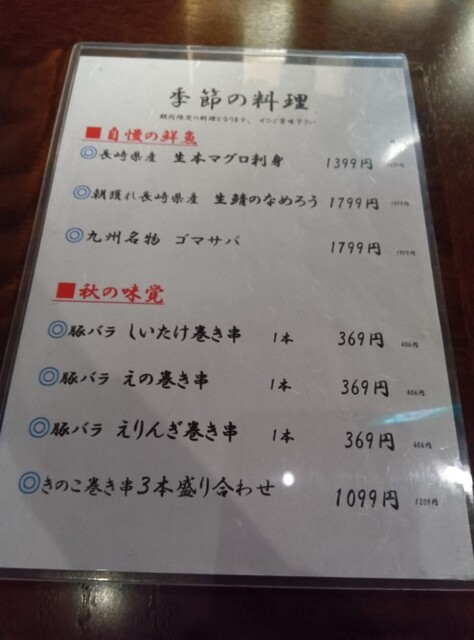 季節の料理
期間限定の料理となります。 ぜひご賞味下さい
■自慢の鮮魚
◎長崎県産 生本マグロ刺身 1399円
◎朝獲れ長崎県産 生鯖のなめろう 1799円
◎九州名物 ゴマサバ 1799円
■秋の味覚
◎豚バラ しいたけ巻き串 1本 369円 406円
◎豚バラ えの巻き串 1本 369円 406円
◎豚バラ えりんぎ巻き串 1本 369円 406円
◎きのこ巻き串3本盛り合わせ 1099円 1209円